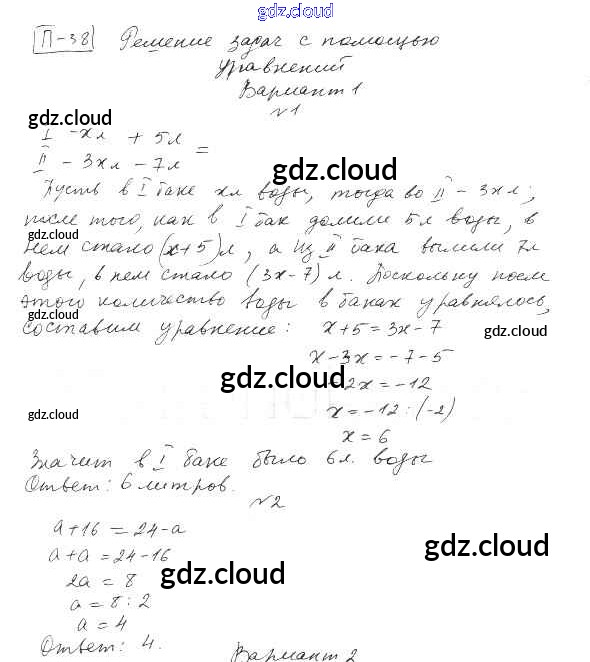 gdz.cloud
П-38 Решение задач с помощью
уравнений
Вариант 1
№1
gdz.cloud
I - xл + 5л
II - 3xл - 7л =
gdz.cloud
Пусть в I баке xл воды, тогда во II - 3xл;
после того, как в I бак долили 5л воды, в
gdz.cloud
нем стало (x+5)л, а из II бака вылили 7л
воды, в нем стало (3x-7)л. Поскольку после
этого количество воды в баках уравнялось,
gdz.cloud
составим уравнение: x+5=3x-7
gdz.cloud
x-3x=-7-5
gdz.cloud
-2x=-12
gdz.cloud
x=-12:(-2)
x=6
Значит в I баке было 6л. воды
Ответ: 6 литров.
№2
a+16=24-a
gdz.cloud
a+a=24-16
gdz.cloud
2a=8
a=8:2
a=4
Ответ: 4.
gdz.cloud
Вариант 2